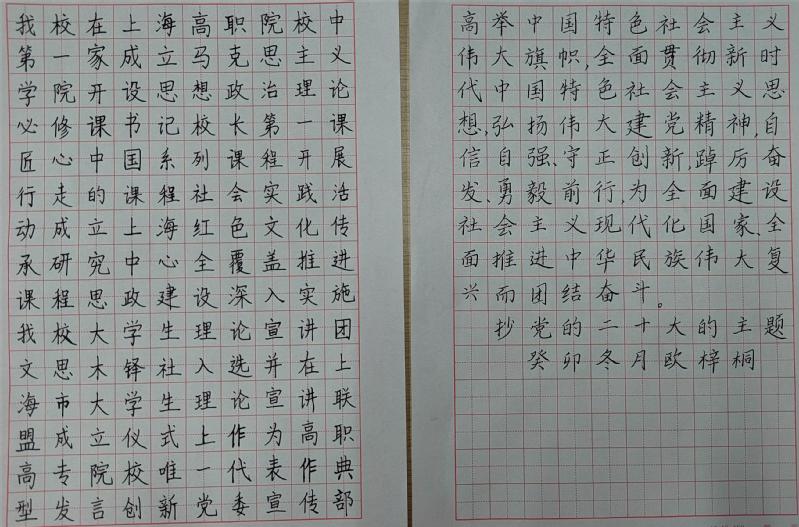 我校在上海高职院校中
第一家成立马克思主义
学院开设思想政治理论
必修课书记校长第一课
匠心中国系列课程开展
行走的课程社会实践活
动成立上海红色文化传
承研究中心全覆盖推进
课程思政建设深入实施
我校大学生理论宣讲团
文思木铎社入选并在上
海市大学生理论宣讲联
盟成立仪式上作为高职
高专院校唯一代表作典
型发言创新党委宣传部
高举中国特色社会主义
伟大旗帜,全面贯彻新时
代中国特色社会主义思
想,弘扬伟大建党精神,自
信自强、守正创新,踔厉奋
发、勇毅前行,为全面建设
社会主义现代化国家、全
面推进中华民族伟大复
兴而团结奋斗。
抄党的二十大的主题
癸卯冬月欧梓桐